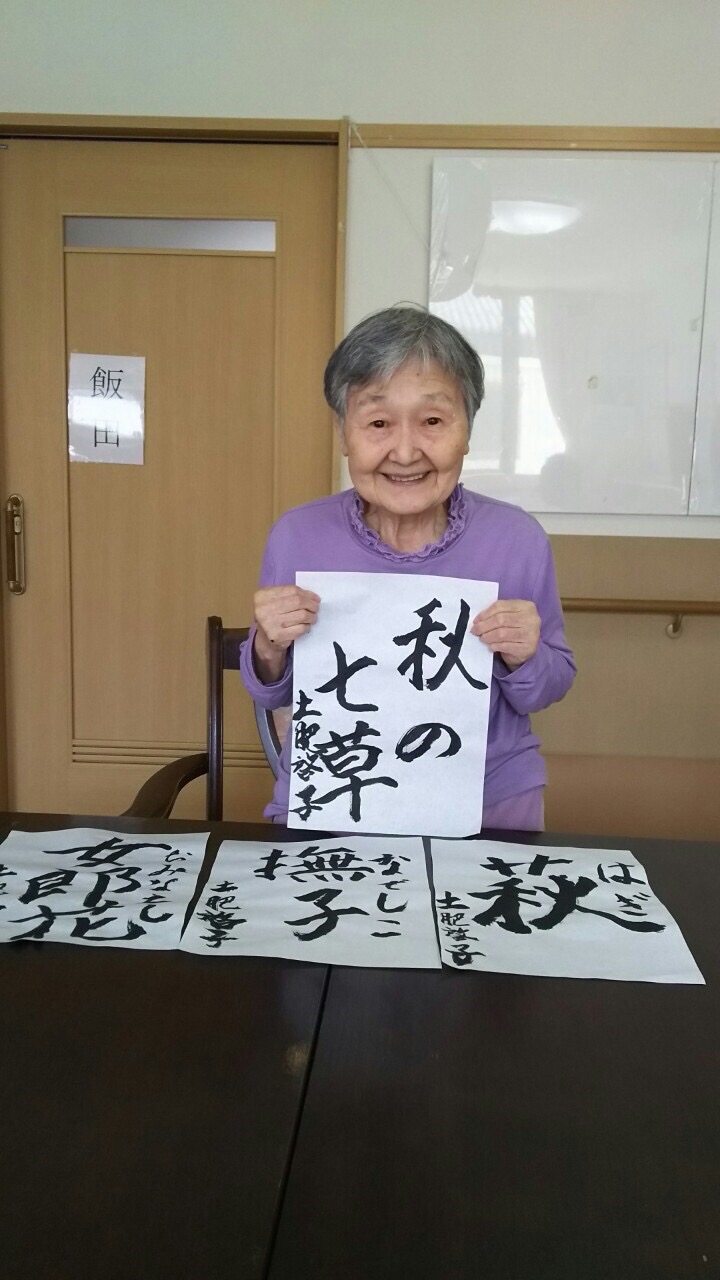 飯田
秋の
七草
土肥啓子
はぎ
萩
土肥啓子
なでしこ
撫子
土肥啓子
おみなえし
女郎花